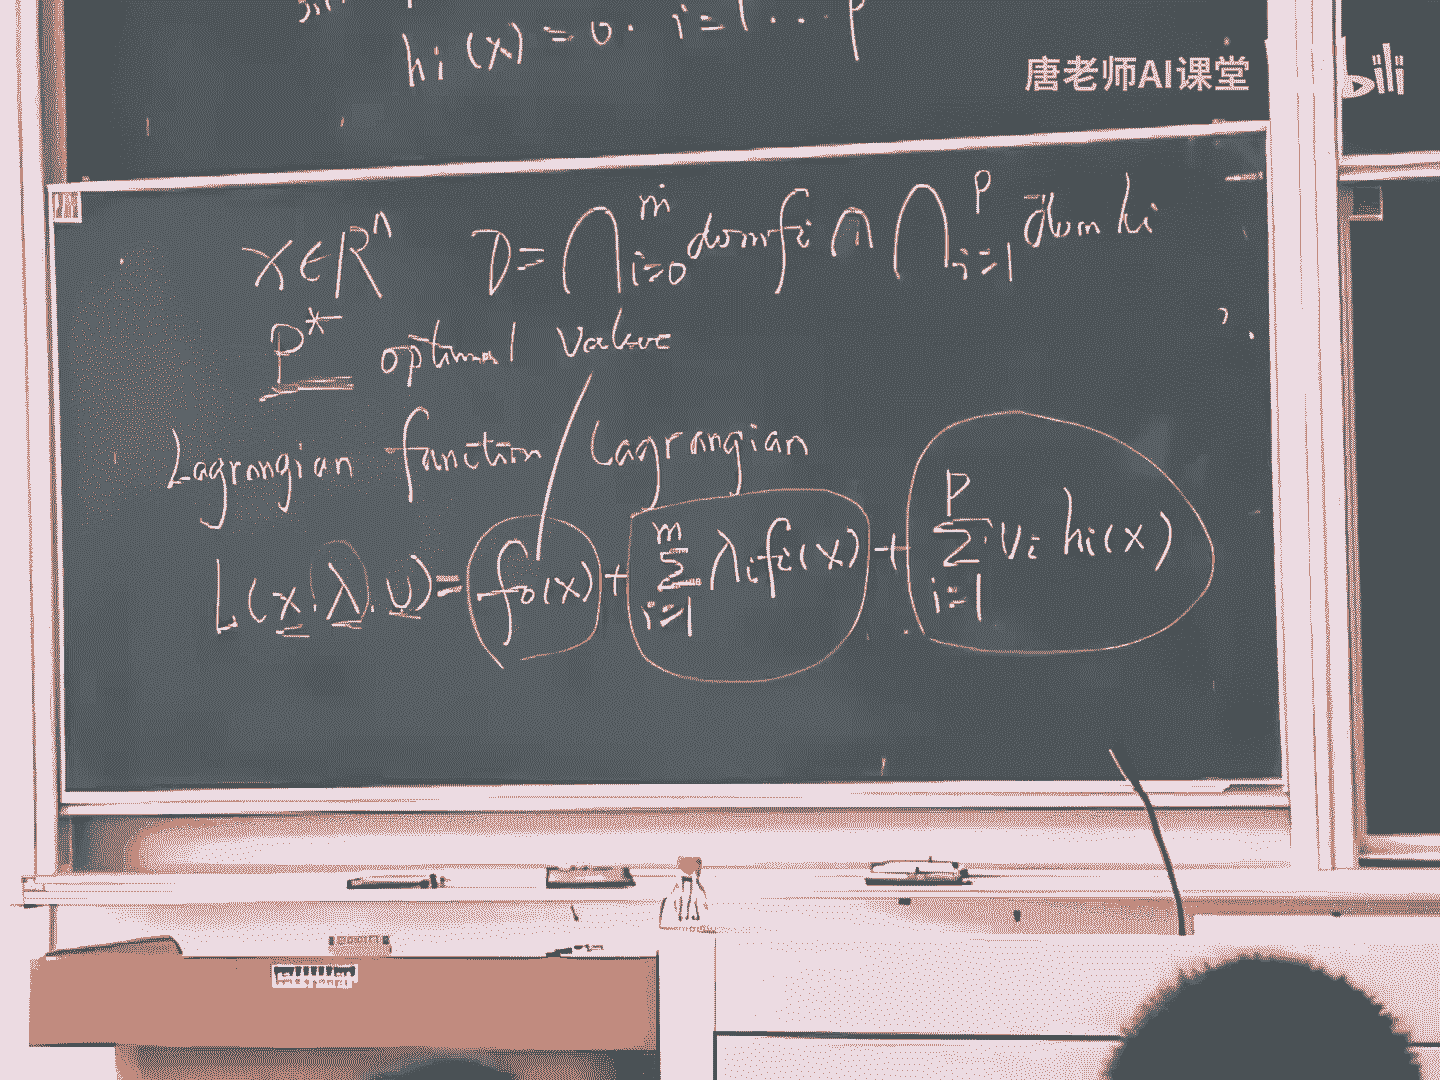 hi(x) = 0. i=1...p
唐老师AI课堂
bili
x∈Rⁿ D = ⋂_{i=0}^{m} dom fi ∩ ⋂_{i=1}^{p} dom hi
P* optimal value
Lagrangian function Lagrangian
L(x.λ.υ) = f₀(x) + ∑_{i=1}^{m} λᵢfᵢ(x) + ∑_{i=1}^{p} υᵢ hᵢ(x)